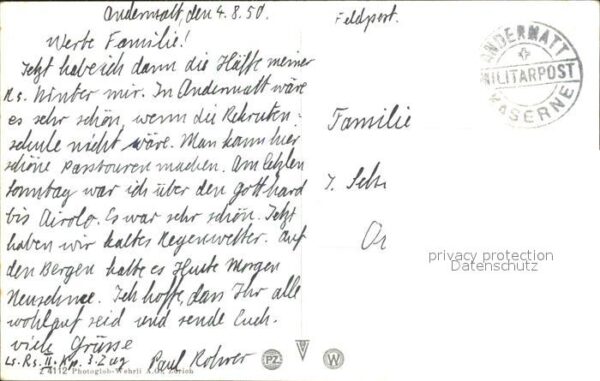 Andermatt, den 4.8.50.
Werte Familie!
Jetzt habe ich dann die Hälfte meiner
Rs. hinter mir. In Andermatt wäre
es sehr schön, wenn die Rekruten-
schule nicht wäre. Man kann hier
schöne Passtouren machen. Am letzten
Sonntag war ich über den Gotthard
bis Airolo. Es war sehr schön. Jetzt
haben wir kaltes Regenwetter. Auf
den Bergen hatte es Heute Morgen
Neuschnee. Ich hoffe, dass Ihr alle
wohlauf seid und sende Euch.
viele Grüsse
Paul Rohrer
Ls. Rs. II. Kp. 3. Zug
Z 4112 Photoglob-Wehrli A.G. Zürich
Feldpost.
ANDERMATT
MILITÄRPOST
KASERNE
Familie
PZ
W
privacy protection
Datenschutz